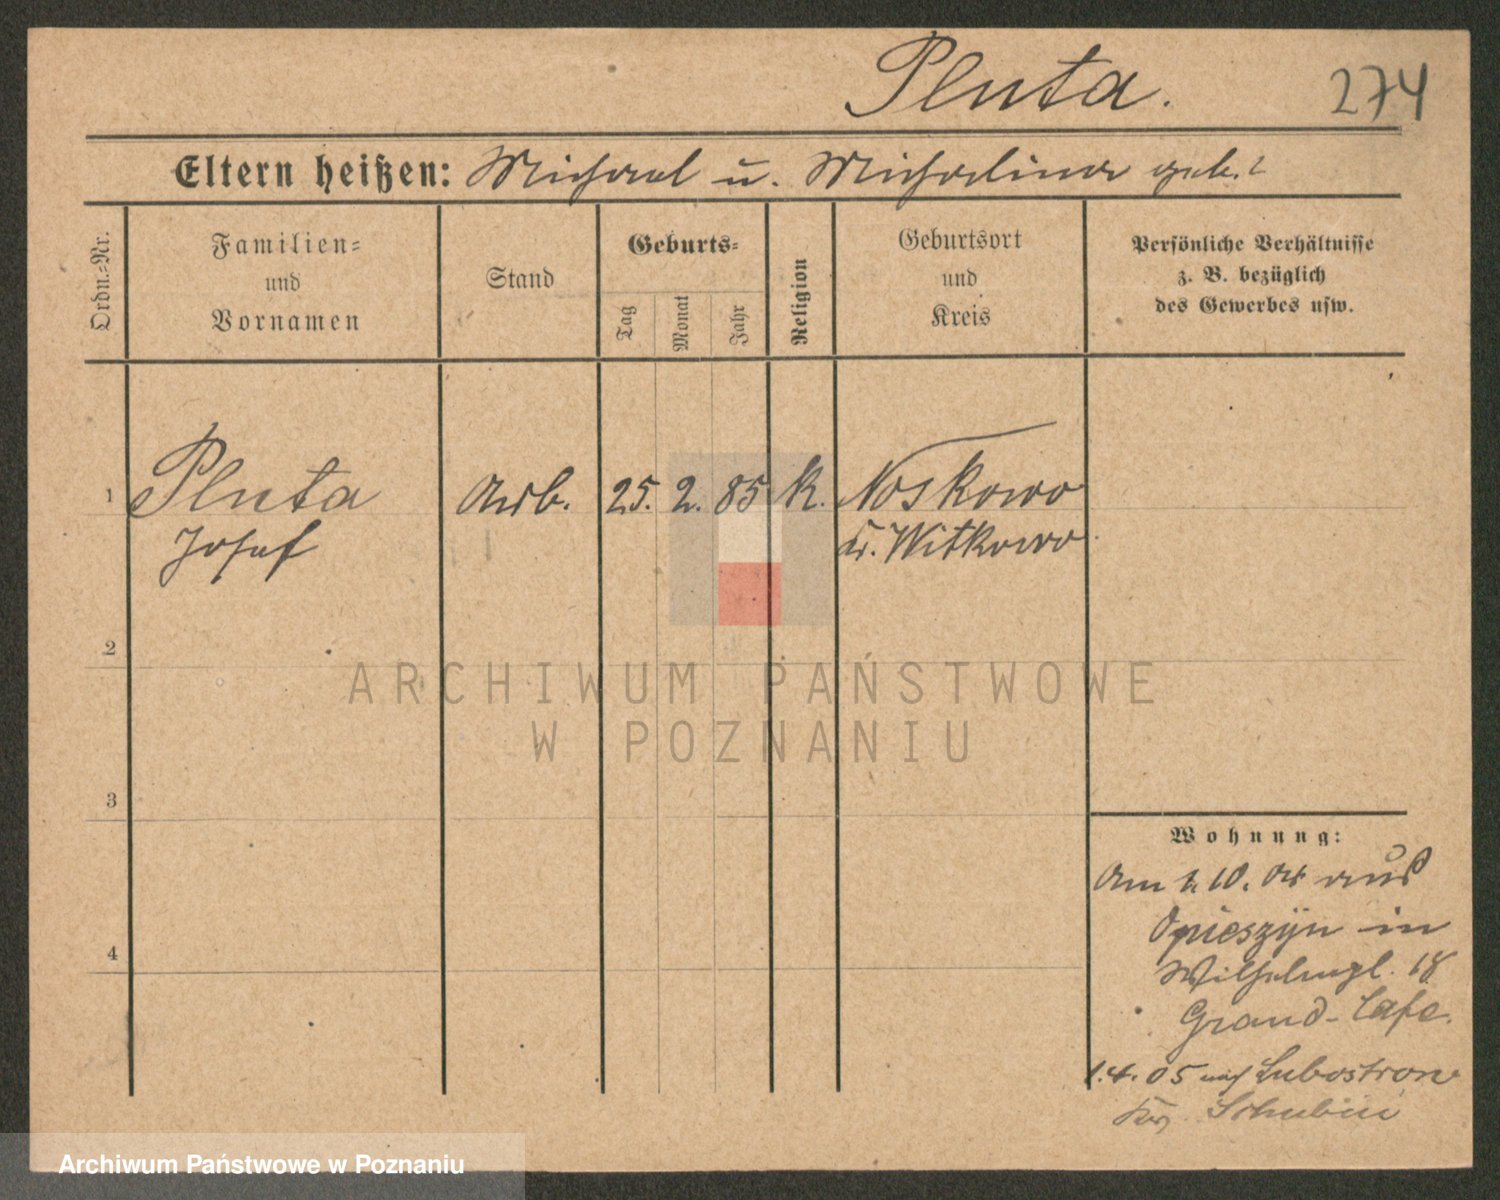 Pluta. 274
Eltern heißen: Michael u. Michalina geb. ?
Ordn.-Nr.
Familien-
und
Vornamen
Stand
Geburts-
Tag
Monat
Jahr
Religion
Geburtsort
und
Kreis
Persönliche Verhältnisse
z. B. bezüglich
des Gewerbes usw.
1 Pluta Arb. 25. 2. 85 k. Noskowo
Josef Kr. Witkowo
2
3
4
Wohnung:
Am 1.10. 04 aus
Opieszyn in
Wilhelmpl. 18
Grand-Cafe.
1.4.05 nach Lubostron
Kr. Schubin
ARCHIWUM PAŃSTWOWE
W POZNANIU
Archiwum Państwowe w Poznaniu